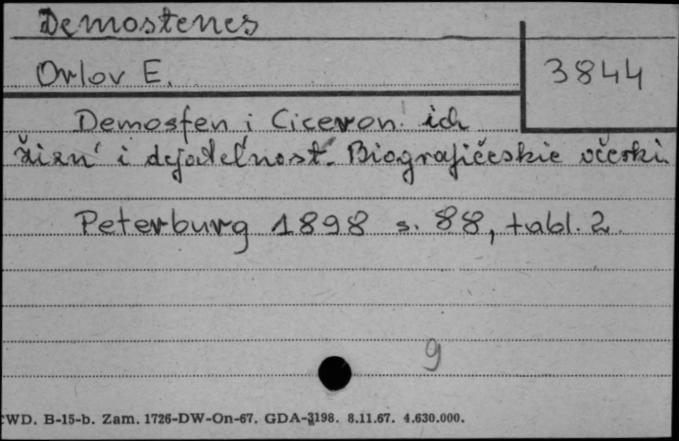 Demostenes
Orlov E.
3844
Demosfen i Ciceron. ich
žizn' i dejatel'nost'. Biografičeskie očerki.
Peterburg 1898 s. 88, tabl. 2.
9
CWD. B-15-b. Zam. 1726-DW-On-67. GDA-3198. 8.11.67. 4.630.000.